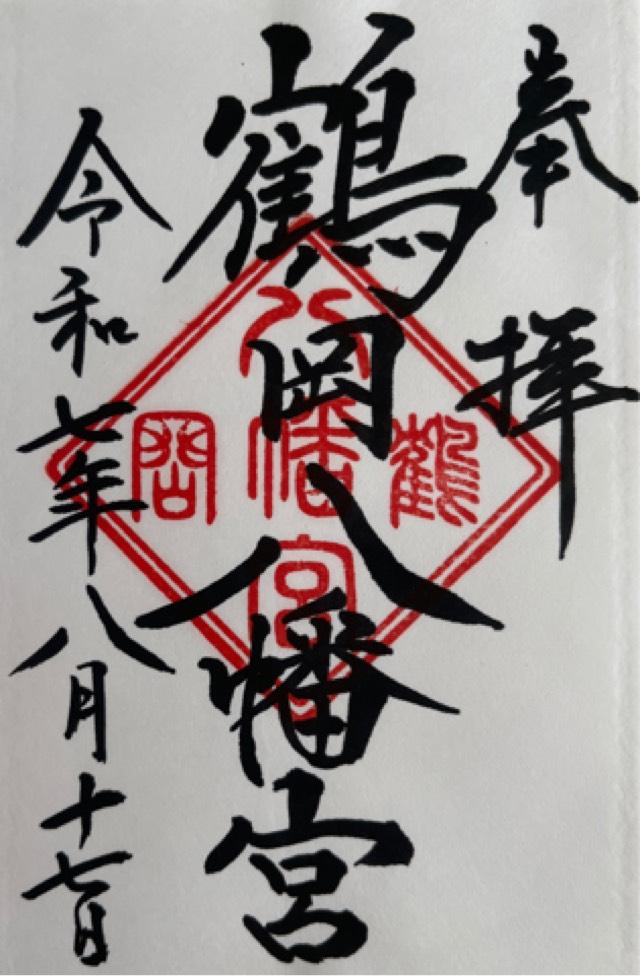 奉拝
鶴岡八幡宮
令和七年八月十七日
鶴岡
八幡宮